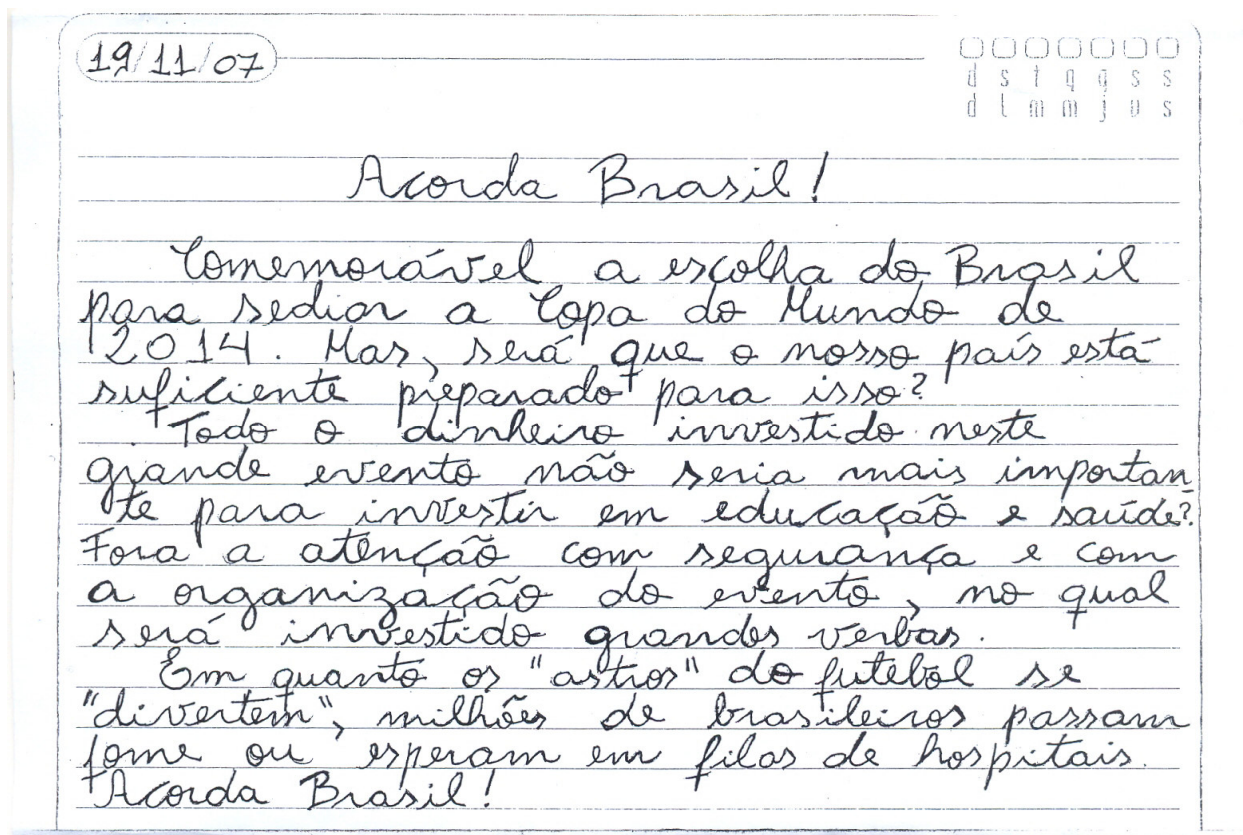 19/11/07
d s t q q s s
d l m m j v s
Acorda Brasil!
Comemorável a escolha do Brasil
para sediar a Copa do Mundo de
2014. Mas, será que o nosso país está
suficiente preparado para isso?
Todo o dinheiro investido neste
grande evento não seria mais importan
te para investir em educação e saúde?
Fora a atenção com segurança e com
a organização do evento, no qual
será investido grandes verbas.
Em quanto os "astros" do futebol se
"divertem", milhões de brasileiros passam
fome ou esperam em filas de hospitais.
Acorda Brasil!